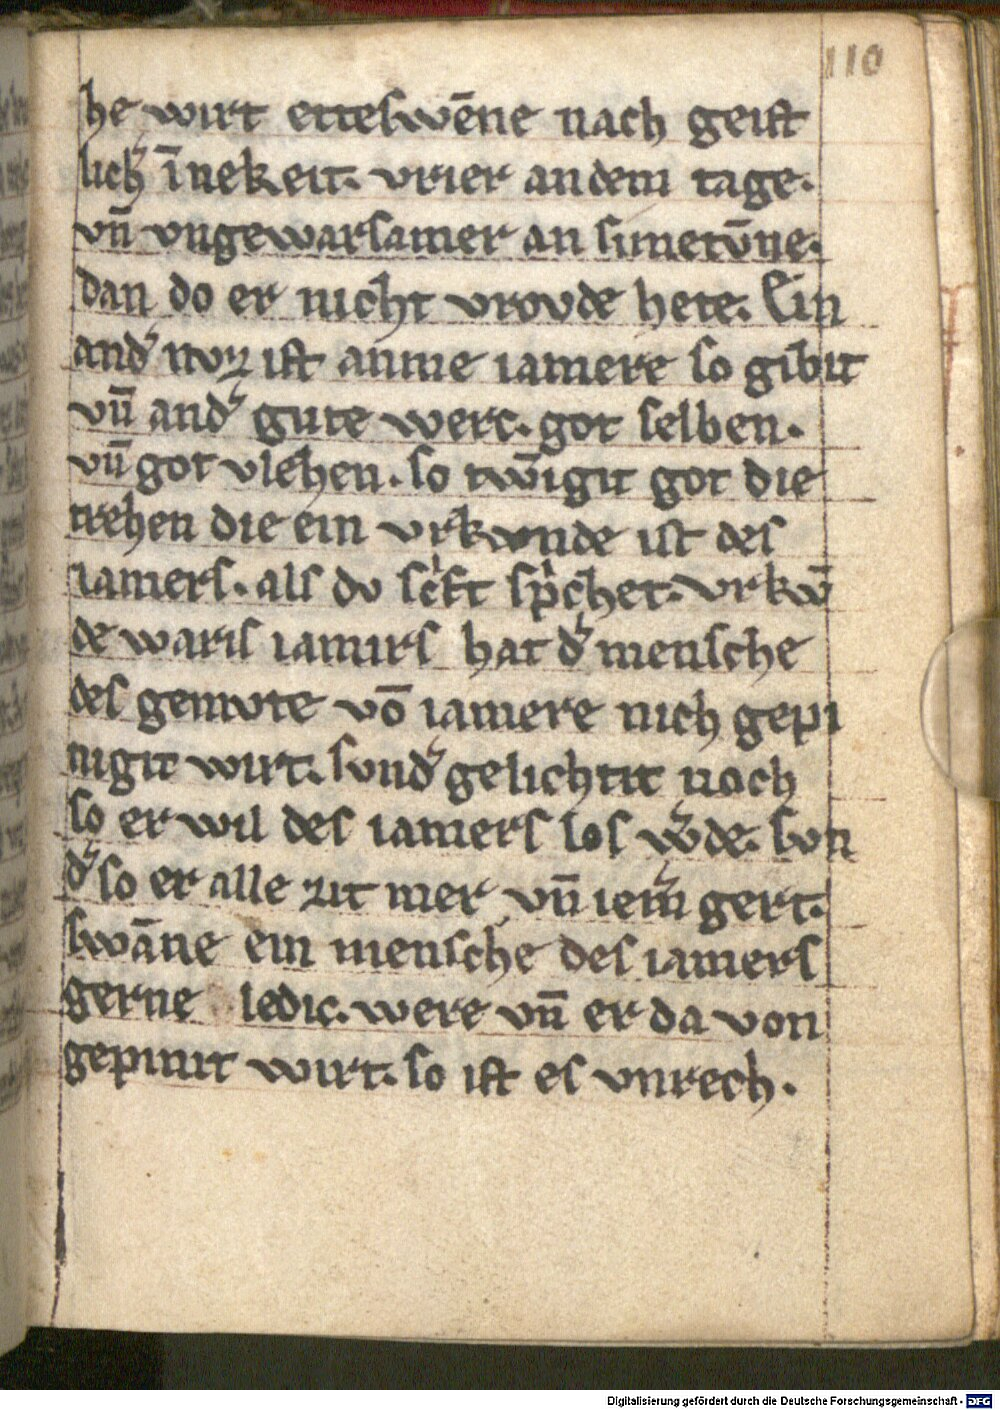 110
he wirt etteswēne nach geist
lich᷎ īnekeit. vrier an dem tage.
vn̄ vngewarsamer an sinetv̄ne.
dan do er nicht vrovde hete. Ein
and᷎ nvz ist anme iamere so gibit
vn̄ and᷎ gute werc. got selben.
vn̄ got vlehen. so twīgit got die
trehen die ein vrkvnde ist des
iamers. als dv scͥft spͥchet. vrkv̄
de waris iamirs hat d᷎ mensche
des gemvte vō iamere nich gepi
nigit wirt. svnd᷎ gelichtit noch
so er wil des iamers los w᷎de. svn
d᷎ so er alle zit mer vn̄ iem᷎ gert.
swāne ein mensche des iamers
gerne ledic. were vn̄ er da von
gepinit wirt. so ist es vnrech.
Digitalisierung gefördert durch die Deutsche Forschungsgemeinschaft - DFG